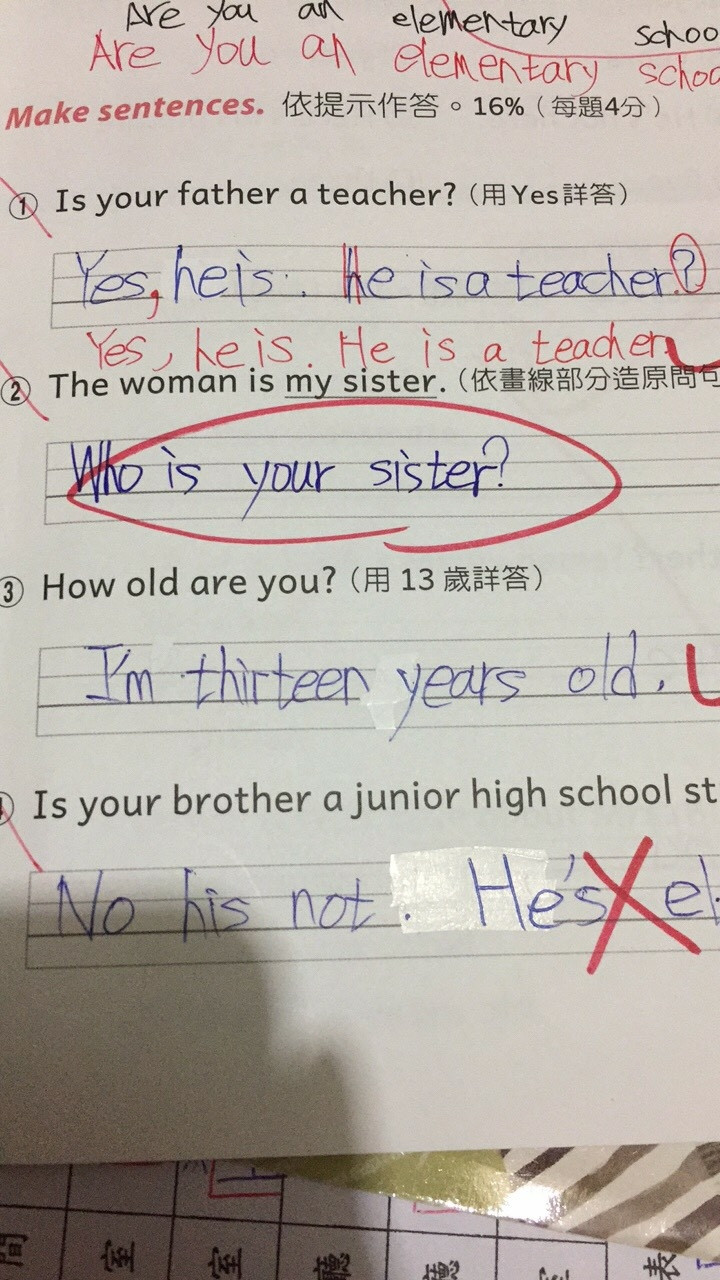 Are you an elementary schoo
Are you an elementary schoo
Make sentences. 依提示作答。16%（每題4分）
① Is your father a teacher?（用Yes詳答）
Yes, he is. He is a teacher?
Yes, he is. He is a teacher.
② The woman is my sister.（依畫線部分造原問句
Who is your sister?
③ How old are you?（用 13 歲詳答）
I'm thirteen years old.
Is your brother a junior high school st
No his not. He's el
間 室 室 廳 廳 室 表